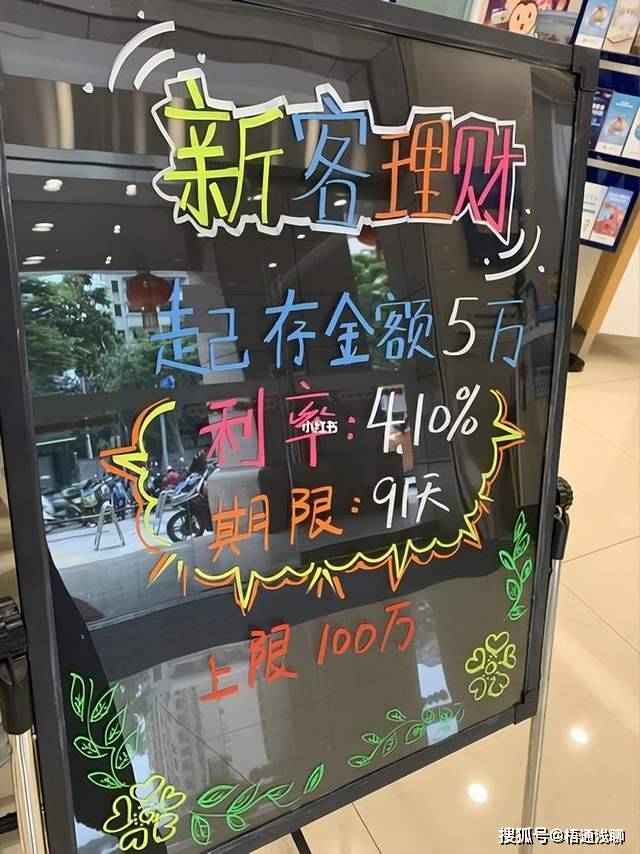 新客理财
起存金额5万
利率:4.10%
小红书
期限:91天
上限100万
搜狐号@梧通浅聊